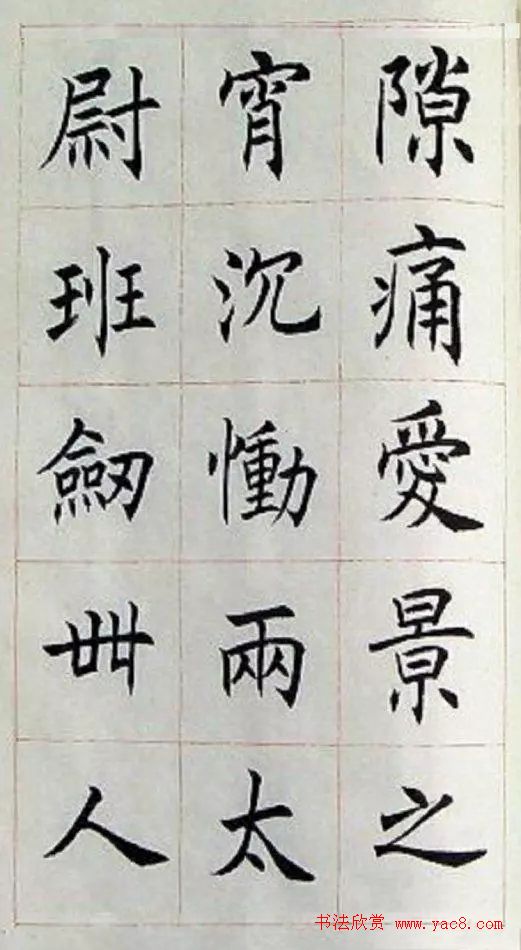 隙痛愛景之
宵沉慟兩太
尉班劒卌人
书法欣赏 www.yac8.com